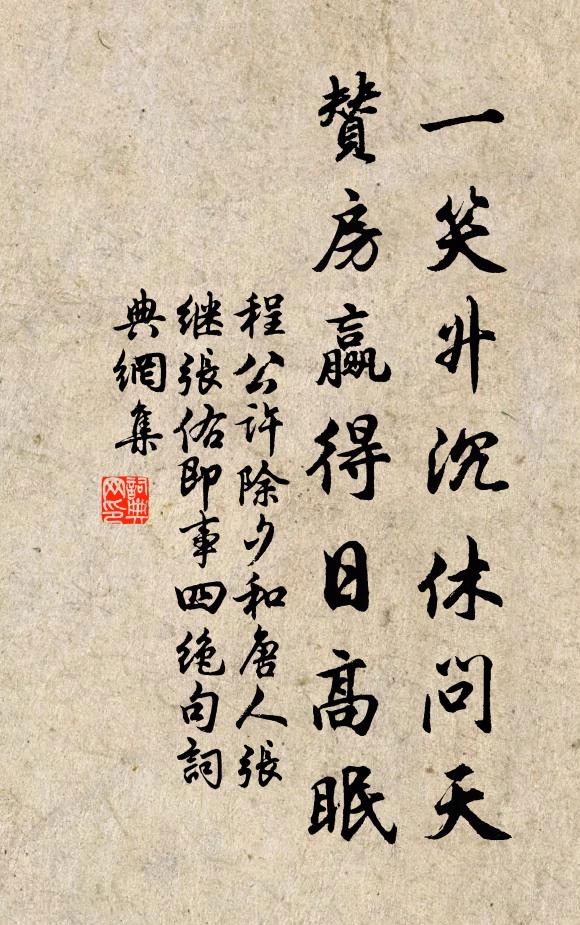 一笑升沉休問天
贊房贏得日高眠
程公許除夕和唐人張
继張佑即事四绝句詞
典網集
詞典网印